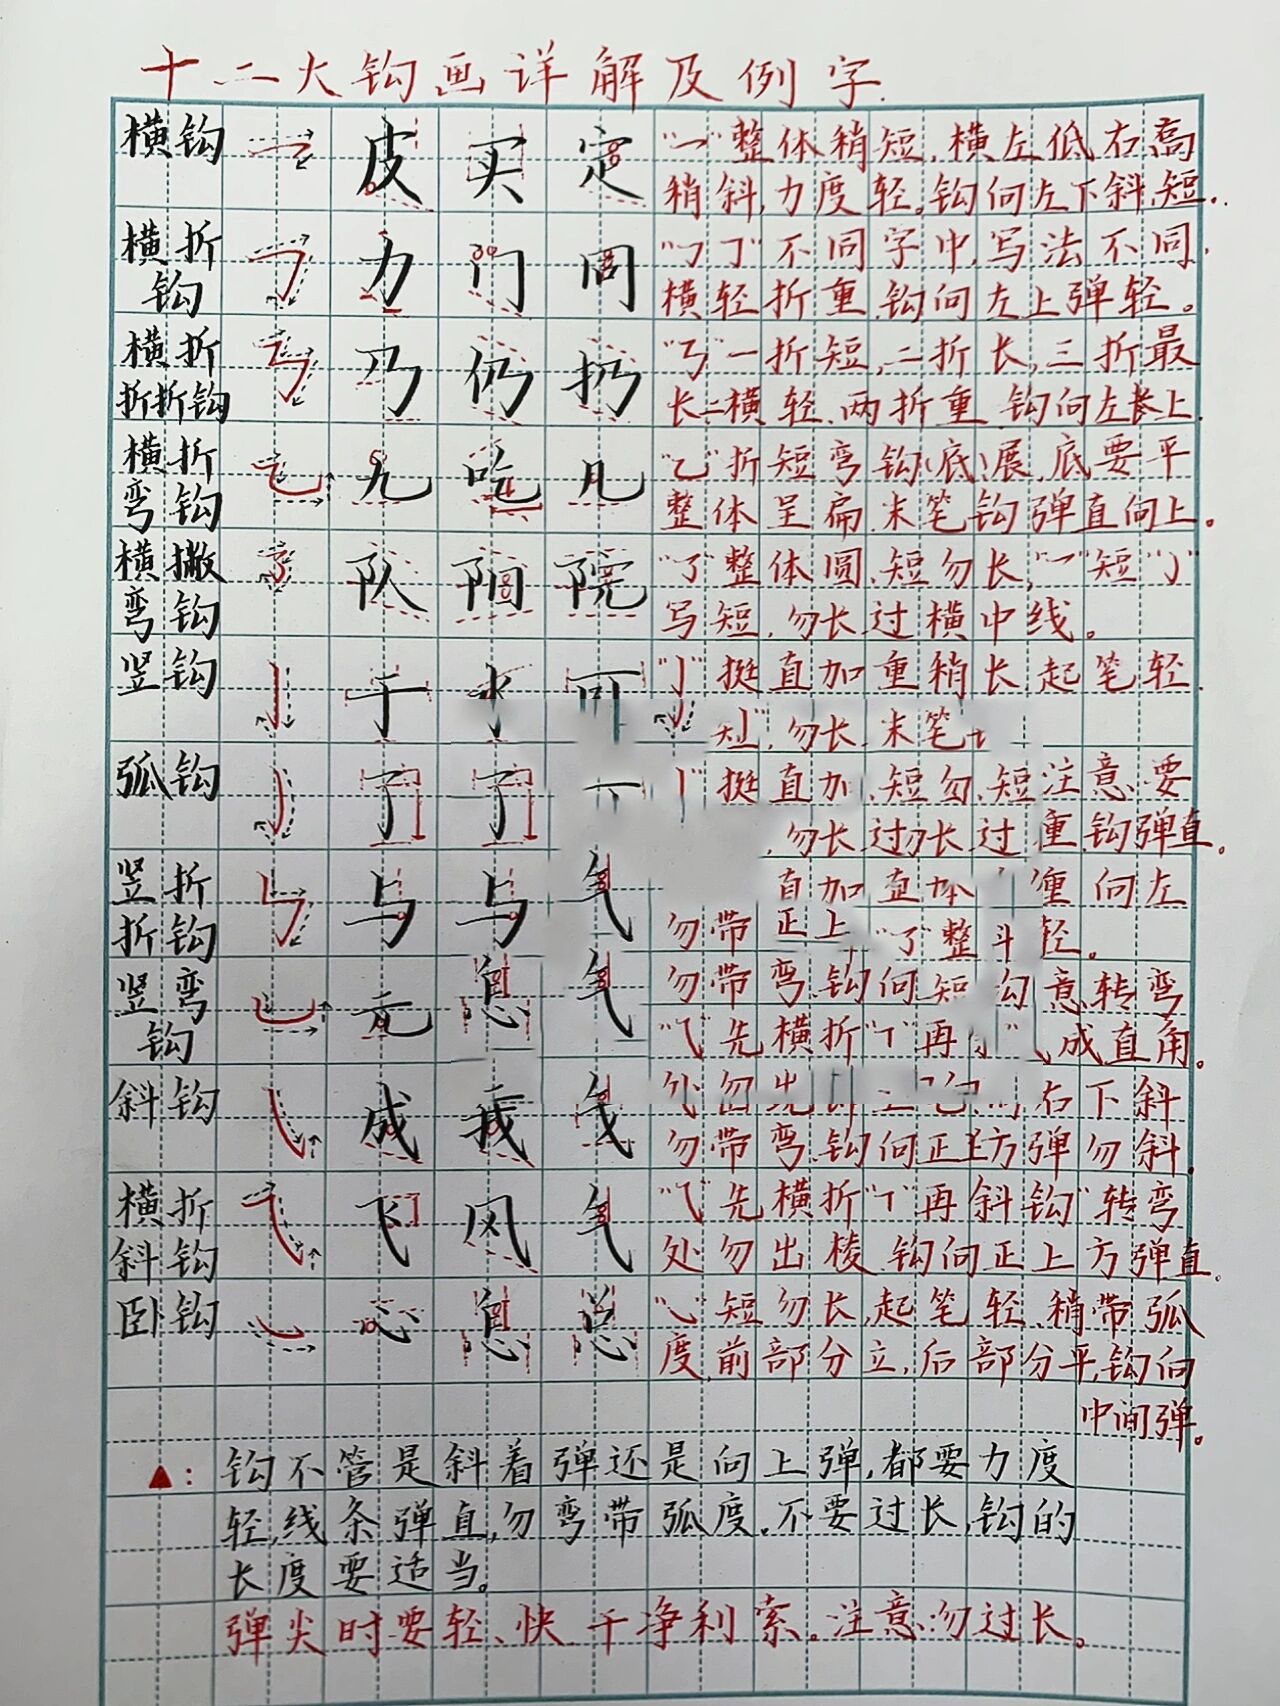 十二大钩画详解及例字.
横钩 皮 买 定 "㇖"整体稍短,横左低右高
稍斜,力度轻。钩向左下斜,短.
横折 力 门 同 "㇆㇆"不同字中,写法不同,
钩 横轻折重,钩向左上弹轻。
横折 乃 仍 扔 "㇡"一折短,二折长,三折最
折折钩 长二横轻、两折重,钩向左长上.
横折 九 吃 几 "乙"折短弯钩(底)展,底要平
弯钩 整体呈扁,末笔钩弹直向上。
横撇 队 阳 院 "㇌"整体圆,短勿长,"㇇"短"㇁"
弯钩 写短,勿长过横中线。
竖钩 于 水 可 "亅"挺直加重稍长,起笔轻.
勿长,末笔
弧钩 了 了 挺直加,短勿,短注意要
勿长过勿长过重,钩弹直。
竖折 与 与 气 直加 直 体 重向左
折钩 勿带正上,"㇌"整 轻。
竖弯 元 息 气 勿带弯,钩向,短 意转弯
钩 "⺄"先横折"㇕"再 成直角。
斜钩 成 我 右下斜
勿带弯,钩向正 方弹勿斜.
横折 飞 风 气 "⺄"先横折"㇕"再斜钩"转弯
斜钩 处勿出棱,钩向正上方弹直.
卧钩 心 息 总 "㇃"短勿长,起笔轻,稍带弧
度,前部分立,后部分平,钩向
中间弹。
▲:钩不管是斜着弹还是向上弹,都要力度
轻,线条弹直,勿弯带弧度。不要过长,钩的
长度要适当。
弹尖时要轻、快、干净利索。注意勿过长。